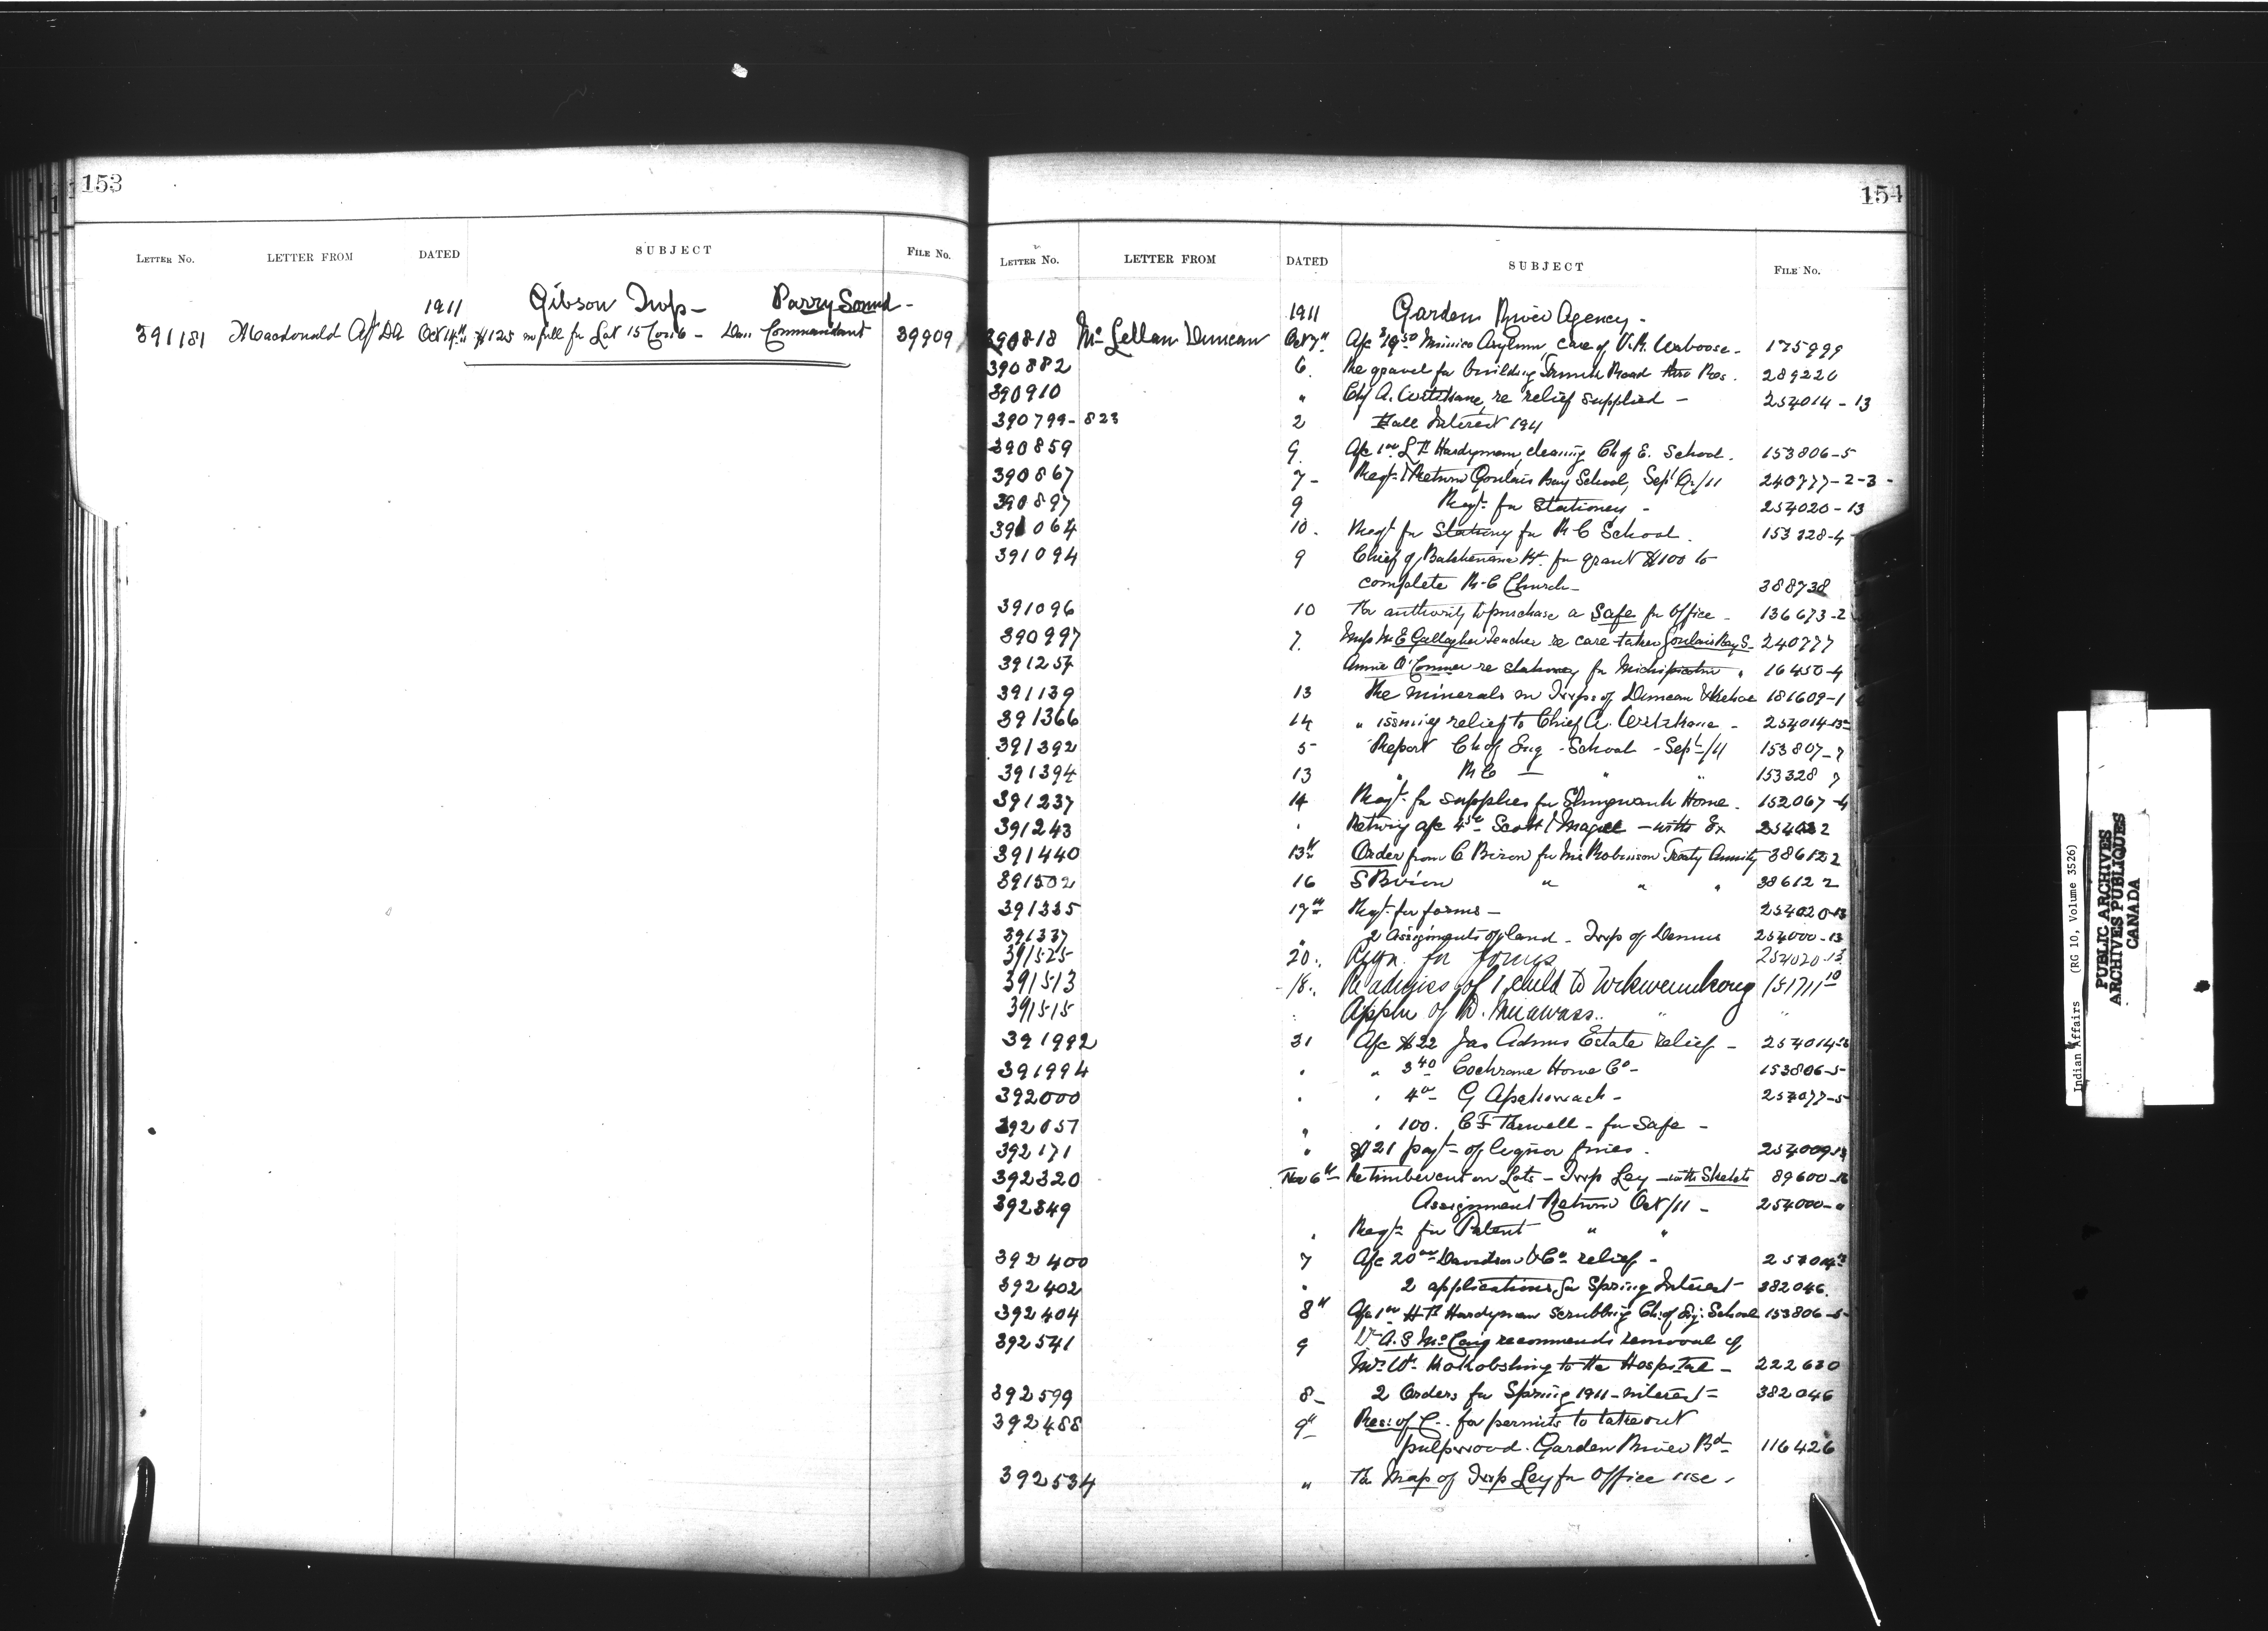 153
LETTER No. LETTER FROM DATED SUBJECT FILE No.
1911 Gibson Twp - Parry Sound -
391181 Macdonald A/ DA Oct 14th $125 in full for Lot 15 Con 6 - Dan Commandant 39909
154
LETTER No. LETTER FROM DATED SUBJECT FILE No.
1911 Garden River Agency -
390818 McLellan Duncan Oct 7th A/c $19.50 Mimico Asylum, care of Waboose - 175999
390882 6. Re gravel for building Road Res. 289226
390910 " Chf A. re relief supplied - 254014-13
390799-823 2 Fall Interest 1911
390859 9. A/c 1.00 Hardyman, cleaning Ch of E. School. 153806-5
390867 7- Reqt. & Return Goulais Bay School, Sept Q/11 240777-2-3-
390897 9 Reqt. for Stationery - 254020-13
391064 10. Reqt for Stationy for R C School. 153328-4
391094 9 Chief of Batchewana Bd. for grant $100 to
complete R-C Church - 388738
391096 10 For authority to purchase a Safe for Office - 136673-2
390997 7. Miss M E Gallagher Teacher re care taker Goulais Bay S- 240777
391257 Annie O'Connor re stationery for Michipicoten " 16450-4
391139 13 Re minerals in Twps of Duncan & Kehoe 181609-1
391366 14 " issuing relief to Chief A. - 254014-13
391392 5 Report Ch of Eng - School - Sept/11 153807-7
391394 13 " R C - " " 153328 7
391237 14 Reqt. for supplies for Shingwauk Home. 152067-4
391243 " Retng a/c 4.50 Scott & Magee - with Ex
391440 13th Order from C Biron for his Robinson Treaty Annuity 386122
391502 16 S Biron " " " 386122
391335 17th Reqt. for forms - 254020-13
391337 " 2 Assignments of land - Twp of Dennis 254000-13
391525 20. Reqn. for forms 254020-13
391513 18. Re admiss. of 1 child to Wikwemikong 151711-10
391515 : Appln of D. " "
391992 31 A/c $22 Jas Adams Estate relief - 254014-13
391994 " " 3.40 Cochrane Howe Co - 153806-5
392000 " " 4.00 G - 257077-5
392057 " " 100. C F Farwell - for Safe -
392171 " $21 payt of liquor fines. 254009-13
392320 Nov 6th Re timber cut on Lots - Twp Ley - with Sketch 89600-
392349 Assignment Return Oct/11 - 254000-"
" Reqt. for Patent " "
392400 7 A/c 20.00 Davidson & Co. relief -
392402 " 2 applications for Spring Interest 382046.
392404 8th A/c 1.00 Hardyman scrubbing Ch. of Eng. School 153806-5
392541 9 Dr A. S McCaig recommends removal of
Mrs Wm. to the Hospital - 222630
392599 8- 2 Orders for Spring 1911 - interest = 382046
392488 9th Res: of C.. for permits to take out
pulpwood. Garden River Bd - 116426
392534 " For Map of Twp Ley for Office use.
Indian Affairs (RG 10, Volume 3526)
PUBLIC ARCHIVES
ARCHIVES PUBLIQUES
CANADA